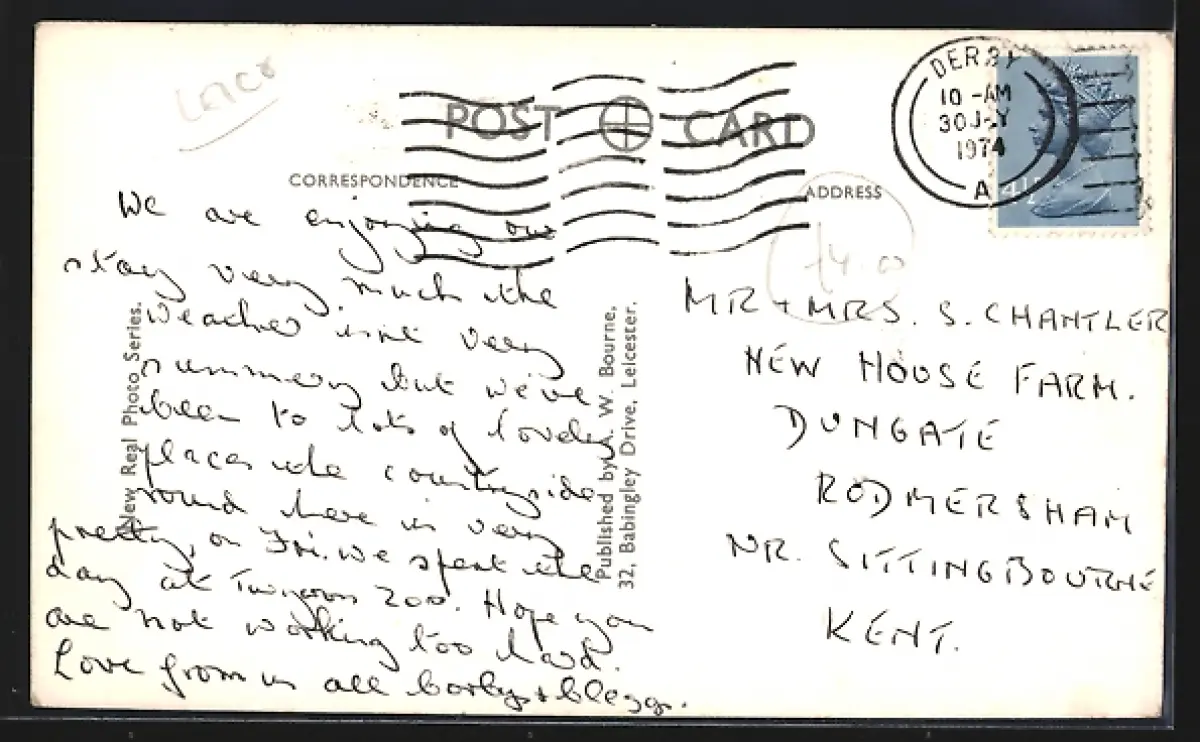 Leics
POST CARD
CORRESPONDENCE
ADDRESS
DERBY
10 -AM
30 J-Y
1974
A
We are enjoying our
stay very much the
weather isnt very
summery but we've
been to lots of lovely
places the countryside
round here is very
pretty, on Fri. we spent the
day at Twycross Zoo. Hope you
are not working too hard.
Love from us all
MR + MRS. S. CHANTLER
NEW HOUSE FARM.
DUNGATE
RODMERSHAM
NR. SITTINGBOURNE
KENT.
New Real Photo Series.
Published by W. Bourne,
32, Babingley Drive, Leicester.